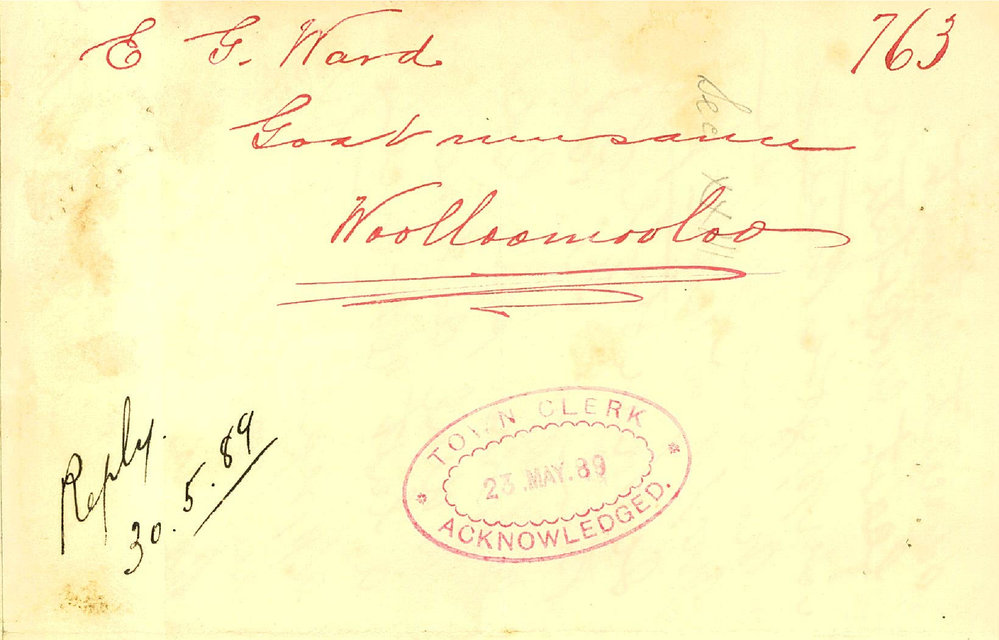 E G. Ward 763
Goat nuisance
Woolloomooloo
Reply.
30.5.89
TOWN CLERK
23.MAY.89
ACKNOWLEDGED.